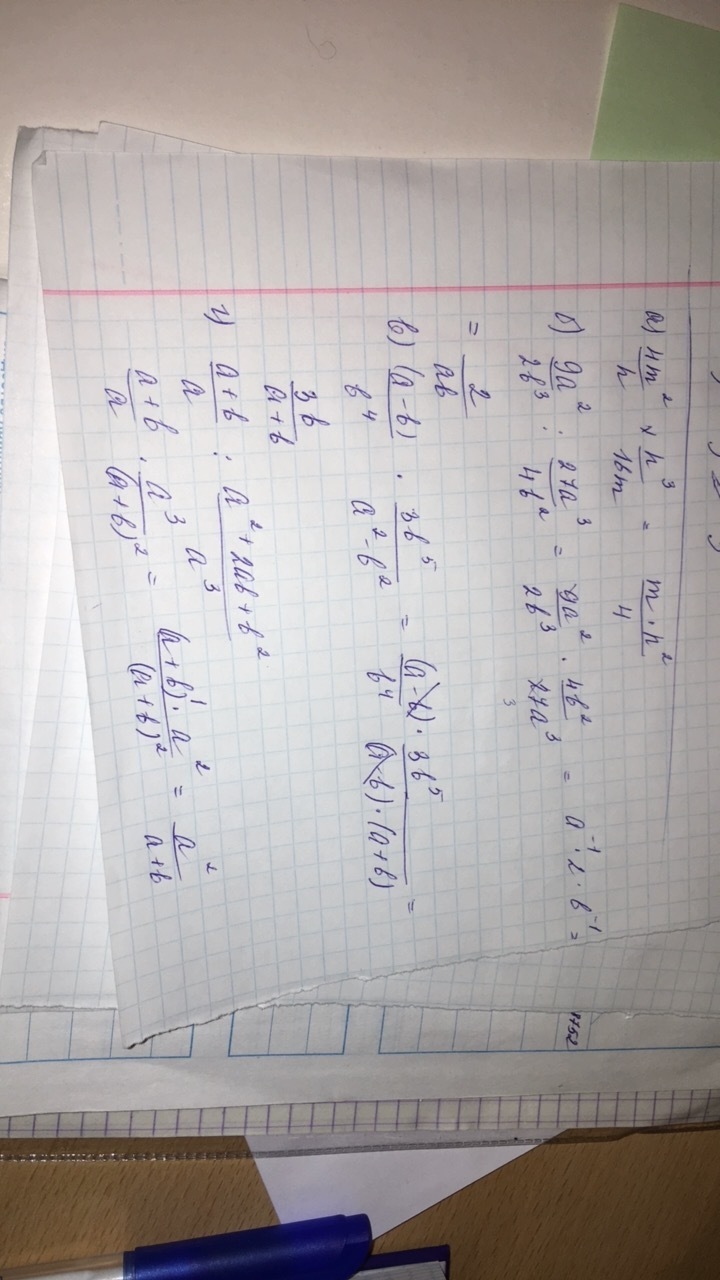 а) 4m²/n × n³/16m = m·n²/4
б) 9a²/2b³ : 27a³/4b² = 9a²/2b³ · 4b²/27a³ = a⁻¹·2·b⁻¹ =
3
= 2/ab
в) (a-b)/b⁴ · 3b⁵/a²-b² = (a-b)·3b⁵/b⁴ (a-b)·(a+b) =
3b/a+b
г) a+b/a : a²+2ab+b²/a³
a+b/a · a³/(a+b)² = (a+b)¹·a²/(a+b)² = a²/a+b